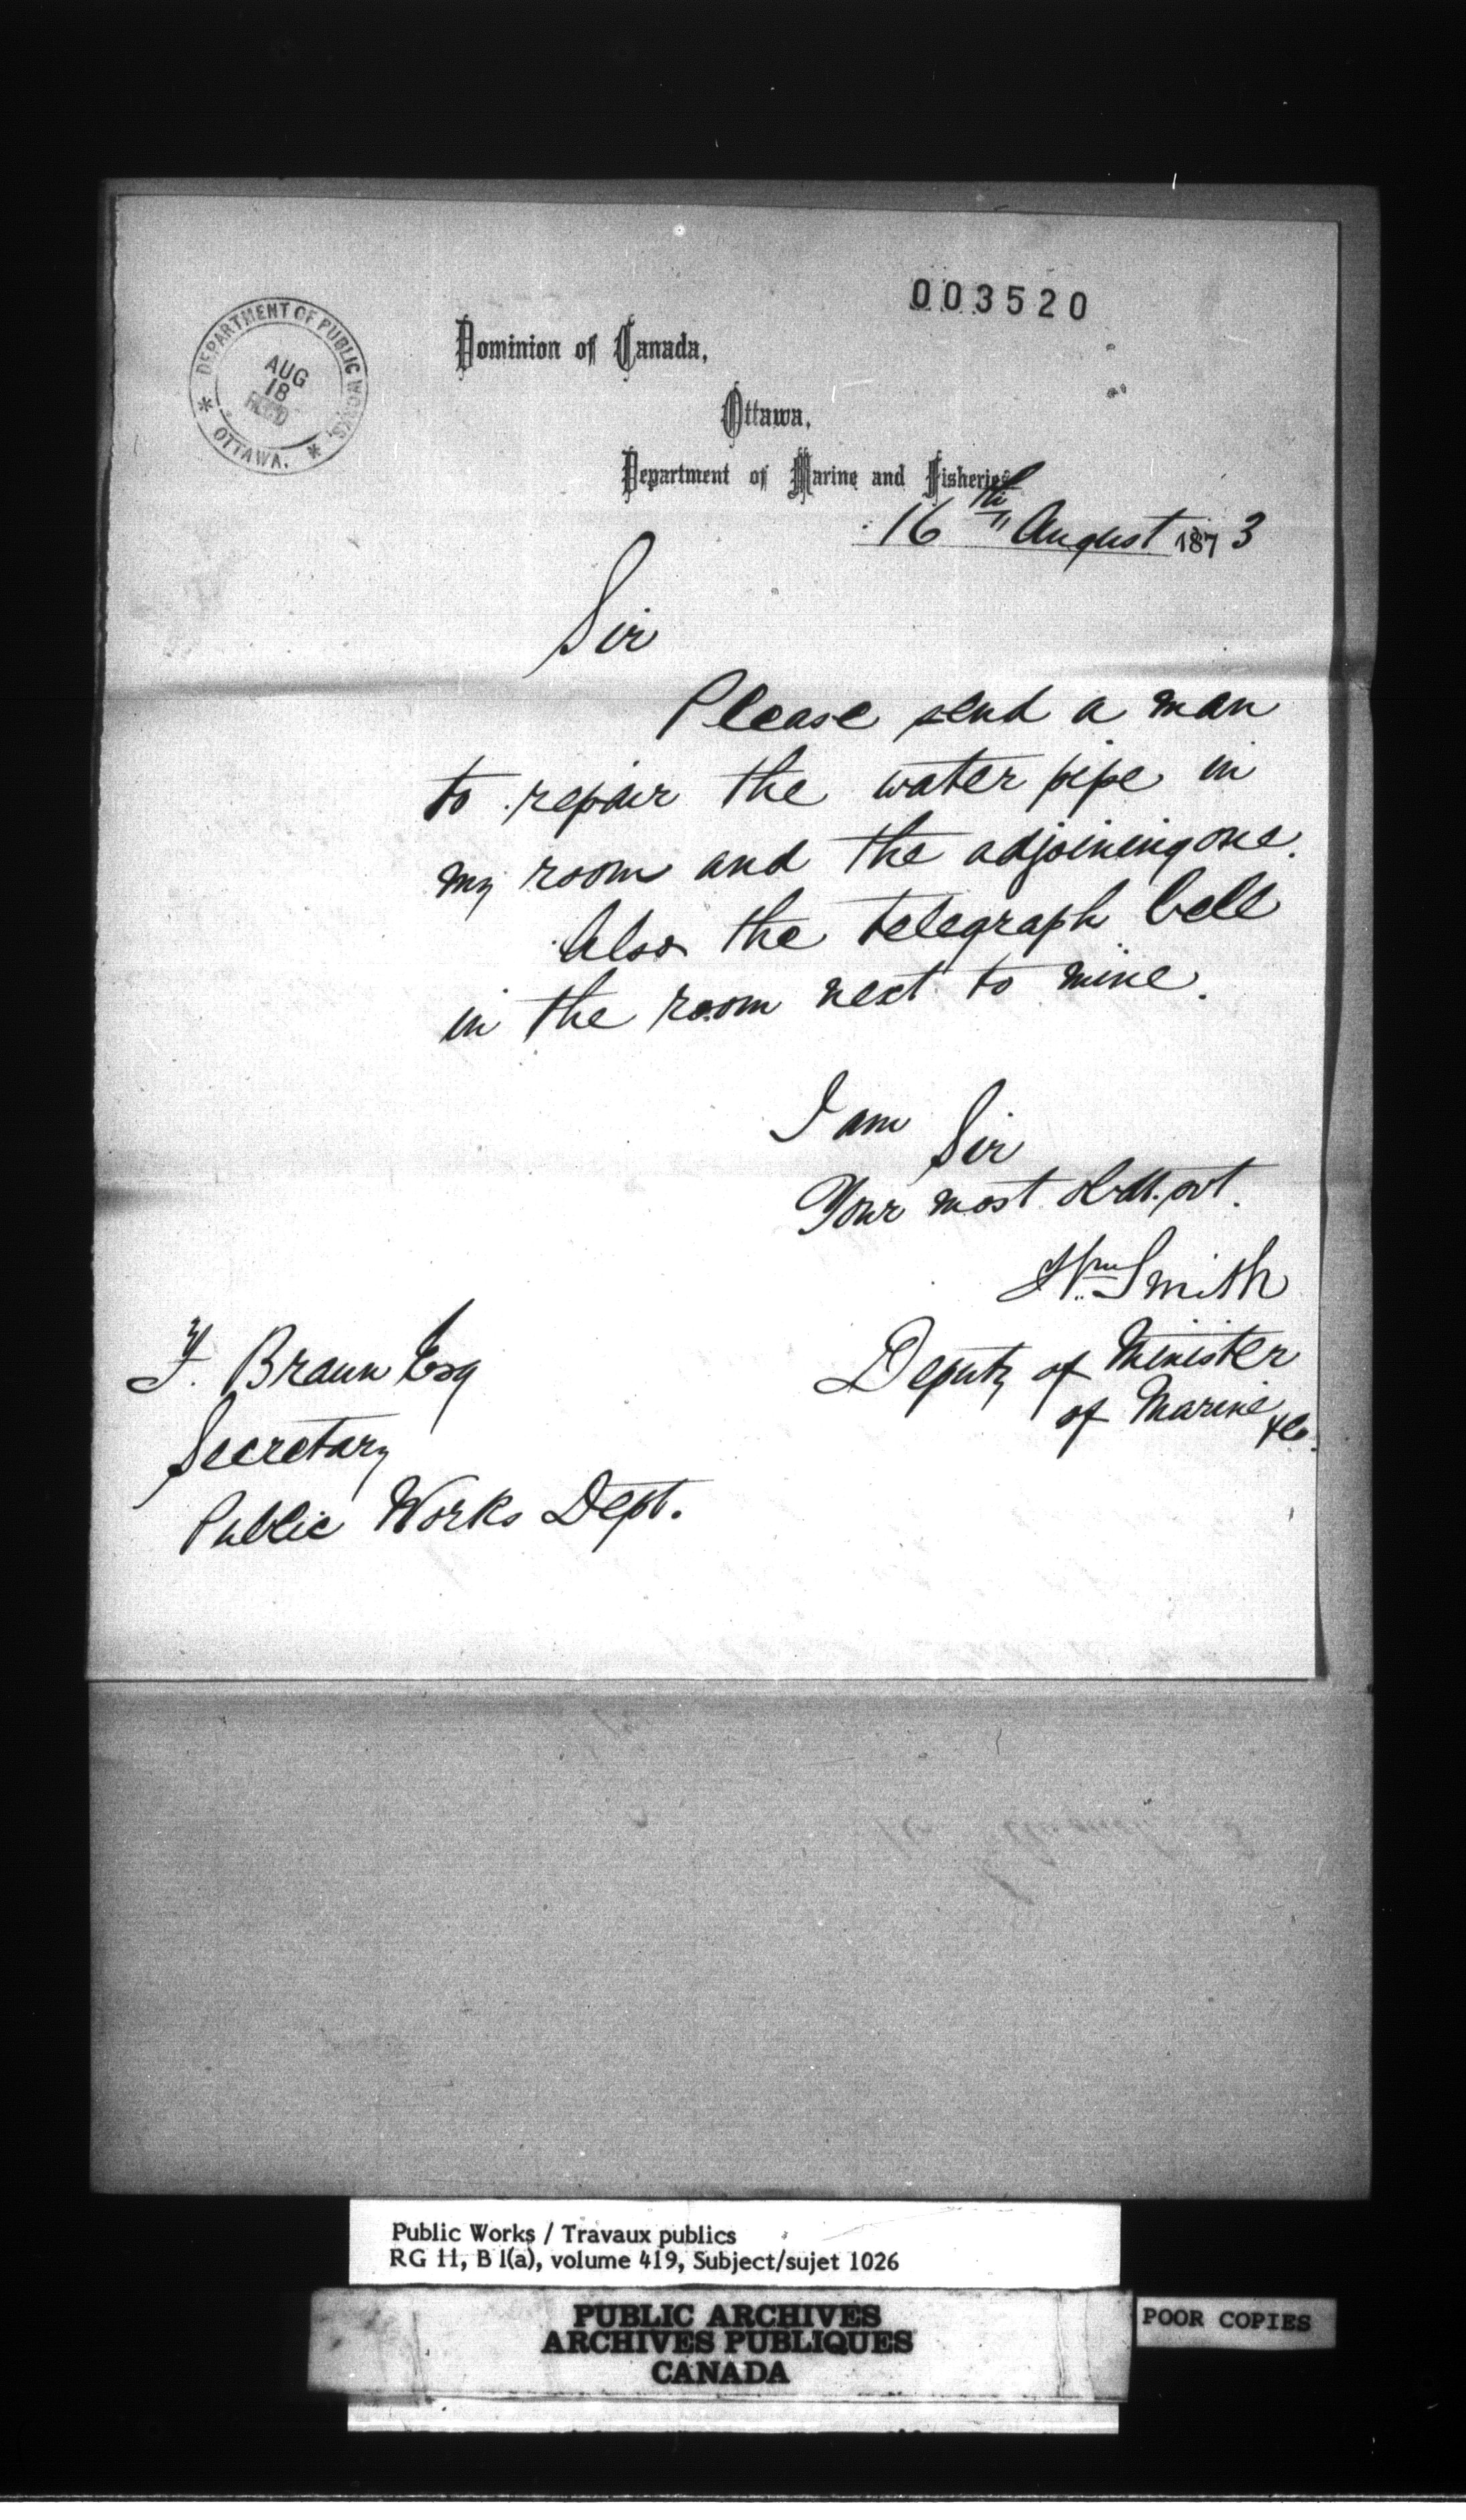 003520
DEPARTMENT OF PUBLIC WORKS,
AUG
18
REC'D
* OTTAWA. *
Dominion of Canada,
Ottawa,
Department of Marine and Fisheries
16th August 1873
Sir
Please send a man
to repair the water pipe in
my room and the adjoining one.
Also the telegraph bell
in the room next to mine.
I am
Sir
Your most obdt. svt.
Wm Smith
Deputy of Minister
of Marine &c.
F. Braun Esq
Secretary
Public Works Dept.
Public Works / Travaux publics
RG 11, B 1(a), volume 419, Subject/sujet 1026
PUBLIC ARCHIVES
ARCHIVES PUBLIQUES
CANADA
POOR COPIES